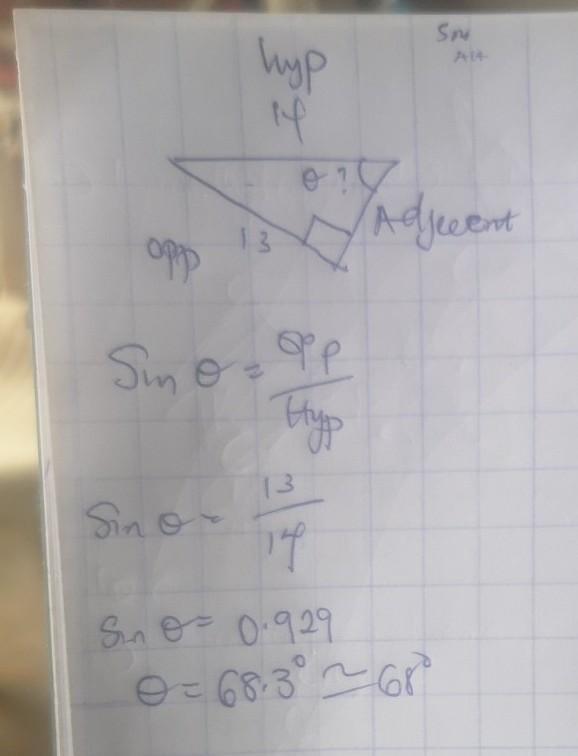 hyp
14
θ ?
Adjecent
opp 13
Sin θ = Opp / Hyp
Sin θ = 13 / 14
Sin θ = 0.929
θ = 68.3° ≃ 68°